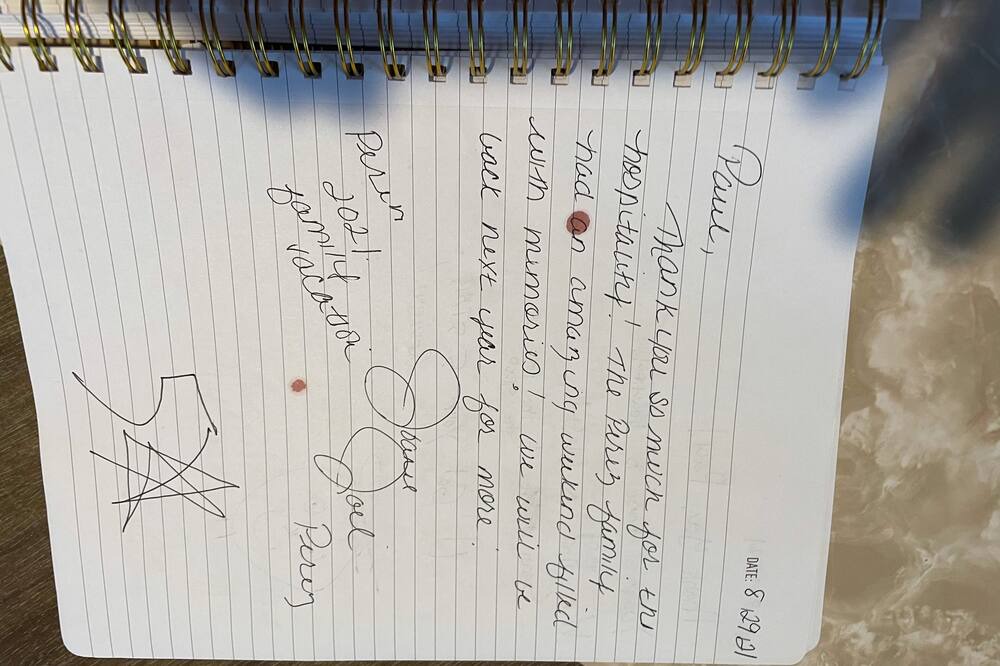 DATE: 8 29 21
Paul,
Thank you so much for the
hospitality! The Perez family
had an amazing weekend filled
with memories! we will be
back next year for more!
Perez
2021
family
vacation
Joel
Perez